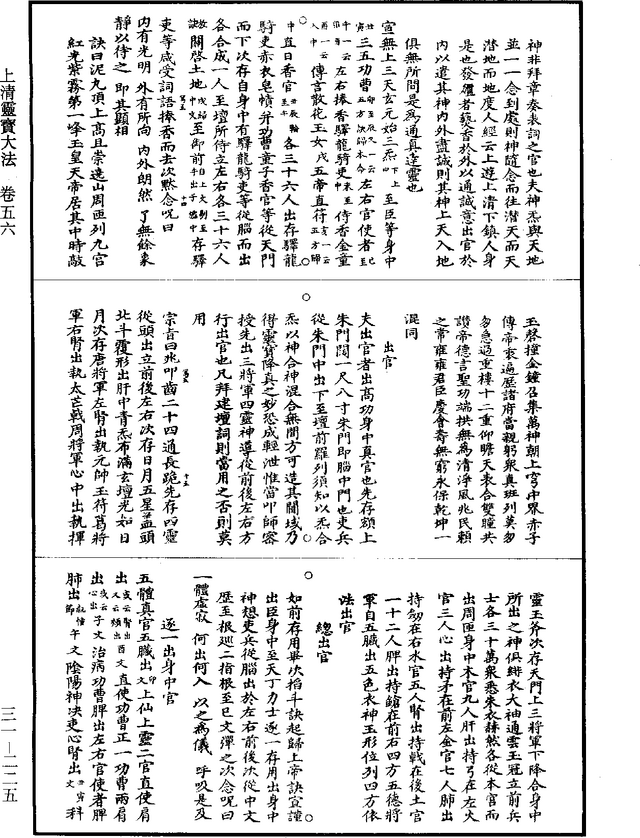 上清靈寶大法 卷五六
三一—二二五
神非拜章奏表詞之官也夫神炁與天地
並一一念到處則神隨念而往潛天而天
潛地而地度人經云上遊上清下鎮人身
是也發爐者爇香於外以通誠意出官於
內以遣其神內外盡誠則其神上天入地
俱無所間是為通真達靈也
宣無上三天玄元始三炁 至臣等身中
三五功曹 左右官使者
左右捧香驛龍騎吏 侍香金童
傳言散花玉女 五帝直符
直日香官 各三十六人出存驛龍
騎吏赤衣皂幘并功曹童子香官等從天門
而下次存自身中有驛龍騎吏等從腦而出
各合成一人至壇所侍立左右各三十六人
關啟土地 至御前 存驛
吏等咸受詞語捧香而去次默念呪曰
內有光明 外有所向 內外朗然 了無餘象
靜以待之 即其顯相
訣曰泥丸頂上高且崇遶山周匝列九宮
紅光紫霧第一峰玉皇天帝居其中時敲
玉磬撞金鐘召集萬神朝上穹中界赤子
傳帝衷遍歷諸府當親躬衆真班列莫匆
匆急過重樓十二重仰瞻天表合雙瞳共
讚帝德言聖功端拱無為清淨風兆民賴
之常雍雍君臣慶會壽無窮永保乾坤一
混同
出官
夫出官者出高功身中真官也先存額上
朱門闊一尺八寸朱門即腦中門也吏兵
從朱門中出下至壇前羅列須知以炁合
炁以神合神混合無間方可造其閫域乃
得靈寶降真之妙恐成輕泄惟當叩師容
授先出三將軍四靈神導從前後左右方
行出官也凡拜建壇詞則當用之否則莫
用
宗旨曰兆叩齒二十四通長跪先存四靈
從頭出立前後左右次存日月五星蓋頭
北斗覆形出肝中青炁布滿玄壇光如日
月次存唐將軍左腎出執元帥玉符葛將
軍右腎出執太芒戟周將軍心中出執揮
靈玉斧次存天門上三將軍下降合身中
所出之神俱緋衣大袖通雲玉冠立前兵
士各三十萬衆悉朱衣赫然各從本官而
出周匝身中本官九人肝出持弓在左火
官三人心出持矛在前左金官七人肺出
持劒在右水官五人腎出持戟在後土官
一十二人脾出持鎗在前右四方五德將
軍自五臟出五色衣神王形位列四方依
法出官
總出官
如前存用畢次搯斗訣起歸上帝訣宣謹
出臣身中至天丁力士逐一存用出身中
神想吏兵從腦出於左右前後次從中文
歷至根巡二指根至巳文彈之次念呪曰
一體虛寂 何出何入 以之為儀 呼吸是及
逐一出身中官
五體真官五臟出 上仙上靈二官直使肩
出 直使功曹正一功曹兩肩
出 治病功曹脾出左右官使者脾
肺出 陰陽神決吏心腎出 科